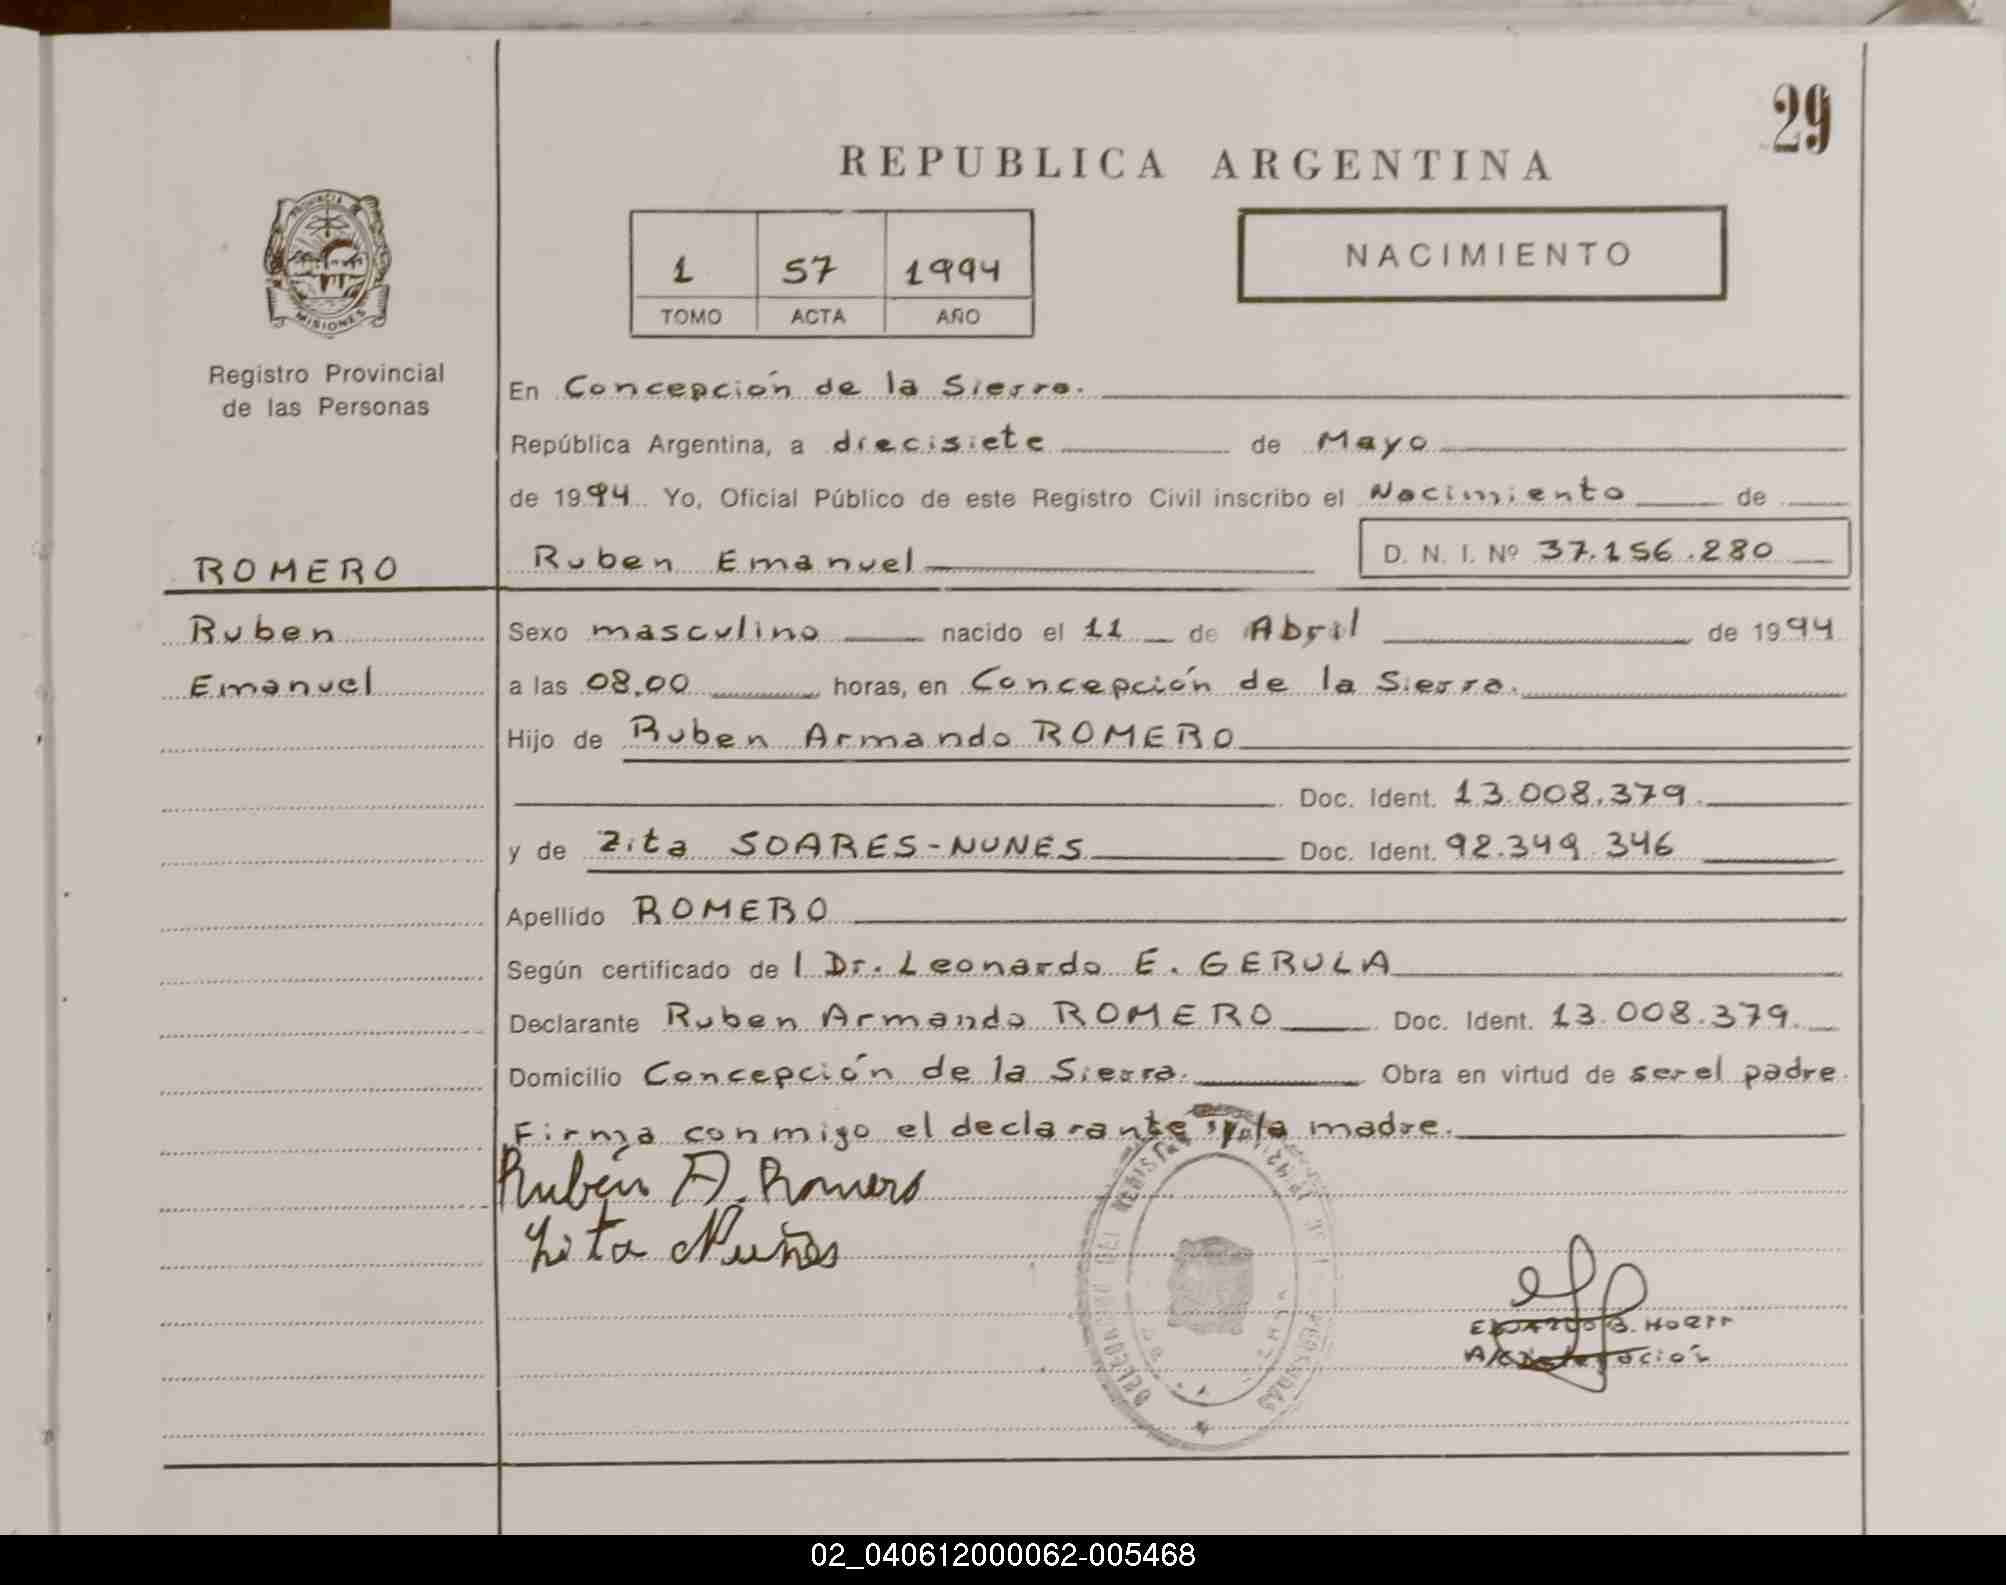 29
REPUBLICA ARGENTINA
NACIMIENTO
1 57 1994
TOMO ACTA AÑO
PROVINCIA DE MISIONES
Registro Provincial
de las Personas
En Concepción de la Sierra.
República Argentina, a diecisiete de Mayo
de 1994 Yo, Oficial Público de este Registro Civil inscribo el Nacimiento de
ROMERO Ruben Emanuel D. N. I. Nº 37.156.280
Ruben Sexo masculino nacido el 11 de Abril de 1994
Emanuel a las 08.00 horas, en Concepción de la Sierra.
Hijo de Ruben Armando ROMERO
Doc. Ident. 13.008.379.
y de Zita SOARES-NUNES Doc. Ident. 92.349.346
Apellido ROMERO
Según certificado de l Dr. Leonardo E. GERULA
Declarante Ruben Armando ROMERO Doc. Ident. 13.008.379.
Domicilio Concepción de la Sierra. Obra en virtud de ser el padre.
Firma conmigo el declarante y la madre.
Rubén A. Romero
Zita Nuñes
EDUARDO B.
02_040612000062-005468